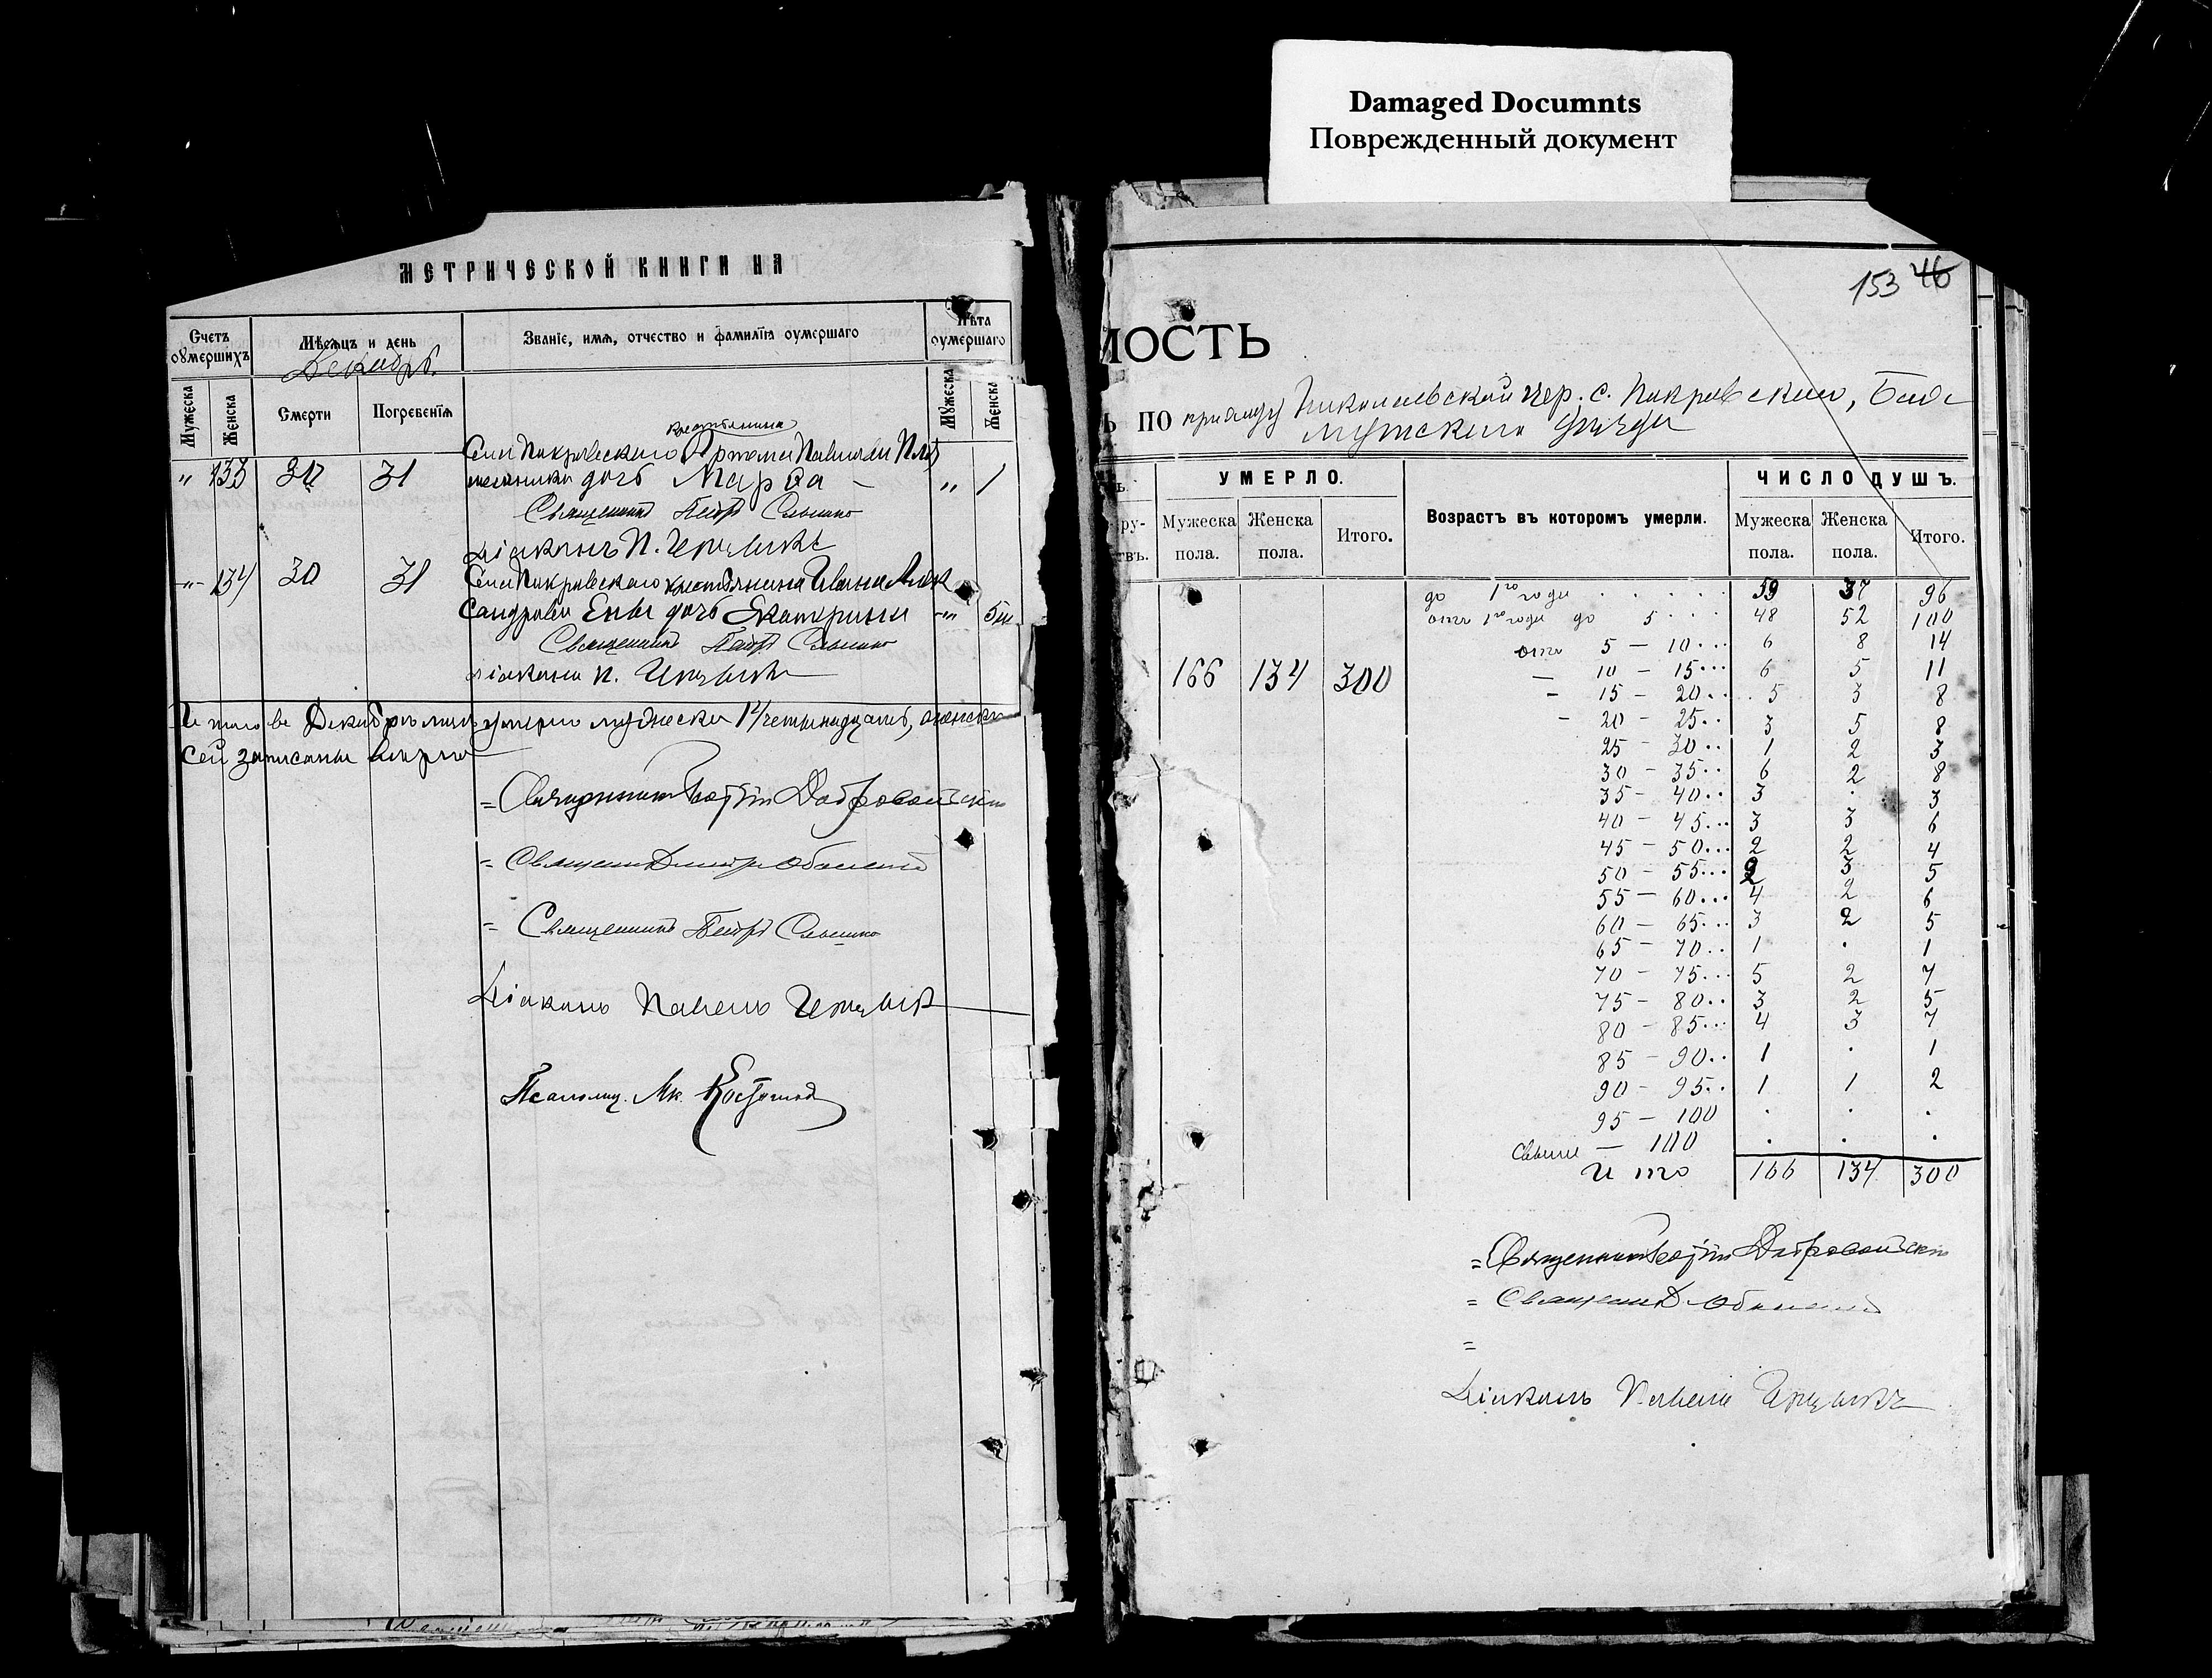 Damaged Documnts
Поврежденный документ
МЕТРИЧЕСКОЙ КНИГИ НА
Счетъ оумершихъ
Мѣсяцъ и день
Декабрь.
Званіе, имя, отчество и фамилія оумершаго
Лѣта оумершаго
Мужеска
Женска
Смерти
Погребенія
Мужеска
Женска
крестьянина
Села Покровскаго Артема Павлова
" 133 30 31 дочь Марѳа — " 1
Священникъ Петръ
Діаконъ П.
" 134 30 31 Села Покровскаго крестьянина Ивана Алек
сандрова дочь Екатерина " 5
Священникъ Петръ
Діаконъ П.
Итого въ Декабрѣ умерло мужеска 14 четырнадцать, женска
сей записаны вѣрно
= Священникъ
= Священникъ
= Священникъ Петръ
Діаконъ Павелъ
Псаломщ.
153 46
МОСТЬ
Ь ПО приходу Николаевской цер. с. Покровскаго,
уѣзда
УМЕРЛО.
Мужеска пола.
Женска пола.
Итого.
Возрастъ въ которомъ умерли.
ЧИСЛО ДУШЪ.
Мужеска пола.
Женска пола.
Итого.
166 134 300
до 1го года . . . . . 59 37 96
отъ 1го года до 5 . . . 48 52 100
отъ 5 — 10 . . . 6 8 14
— 10 — 15 . . . 6 5 11
— 15 — 20 . . . 5 3 8
— 20 — 25 . . 3 5 8
25 — 30 . . 1 2 3
30 — 35 . . 6 2 8
35 — 40 . . 3 . 3
40 — 45 . . . 3 3 6
45 — 50 . . . 2 2 4
50 — 55 . . . 2 3 5
55 — 60 . . . 4 2 6
60 — 65 . . . 3 2 5
65 — 70 . . 1 . 1
70 — 75 . . . 5 2 7
75 — 80 . . 3 2 5
80 — 85 . . . 4 3 7
85 — 90 . . 1 . 1
90 — 95 . . 1 1 2
95 — 100 . . .
свыше — 100 . . .
Итого 166 134 300
= Священникъ
= Священникъ
=
Діаконъ Павелъ